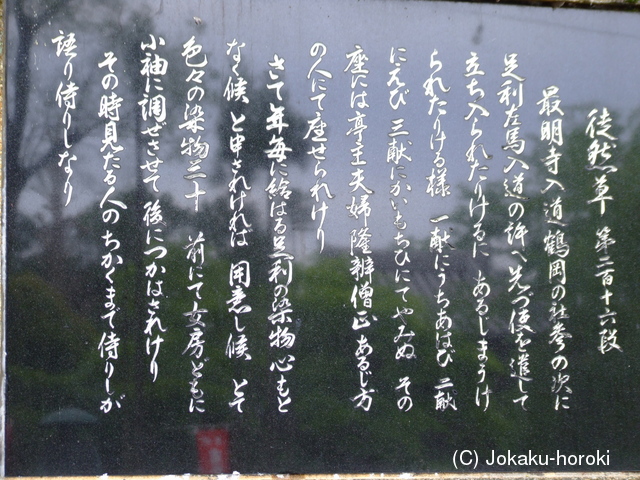 徒然草 第二百十六段
最明寺入道鶴岡の社参の次に
足利左馬入道の許へ先づ使を遣して
立ち入られたりけるに あるじまうけ
られたりける様 一献にうちあはび 二献
にえび 三献にかいもちひにてやみぬ その
座には亭主夫婦隆辨僧正あるじ方
の人にて座せられけり
さて年毎に給はる足利の染物心もと
なく候 と申されければ 用意し候 とて
色々の染物三十 前にて女房ともに
小袖に調ぜさせて後につかはされけり
その時見たる人のちかくまで侍りしが
語り侍りしなり
(C) Jokaku-horoki